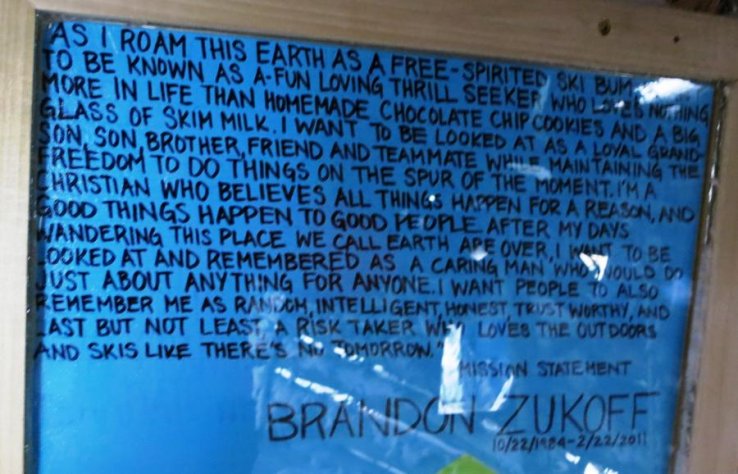 "AS I ROAM THIS EARTH AS A FREE-SPIRITED SKI BUM
TO BE KNOWN AS A-FUN LOVING THRILL SEEKER WHO LOVES NOTHING
MORE IN LIFE THAN HOMEMADE CHOCOLATE CHIP COOKIES AND A BIG
GLASS OF SKIM MILK. I WANT TO BE LOOKED AT AS A LOYAL GRAND-
SON, SON, BROTHER, FRIEND AND TEAMMATE WHILE MAINTAINING THE
FREEDOM TO DO THINGS ON THE SPUR OF THE MOMENT. I'M A
CHRISTIAN WHO BELIEVES ALL THINGS HAPPEN FOR A REASON, AND
GOOD THINGS HAPPEN TO GOOD PEOPLE. AFTER MY DAYS
WANDERING THIS PLACE WE CALL EARTH ARE OVER, I WANT TO BE
LOOKED AT AND REMEMBERED AS A CARING MAN WHO WOULD DO
JUST ABOUT ANYTHING FOR ANYONE. I WANT PEOPLE TO ALSO
REMEMBER ME AS RANDOM, INTELLIGENT, HONEST, TRUSTWORTHY, AND
LAST BUT NOT LEAST, A RISK TAKER WHO LOVES THE OUTDOORS
AND SKIS LIKE THERE'S NO TOMORROW."
MISSION STATEMENT
BRANDON ZUKOFF
10/22/1984-2/22/2011